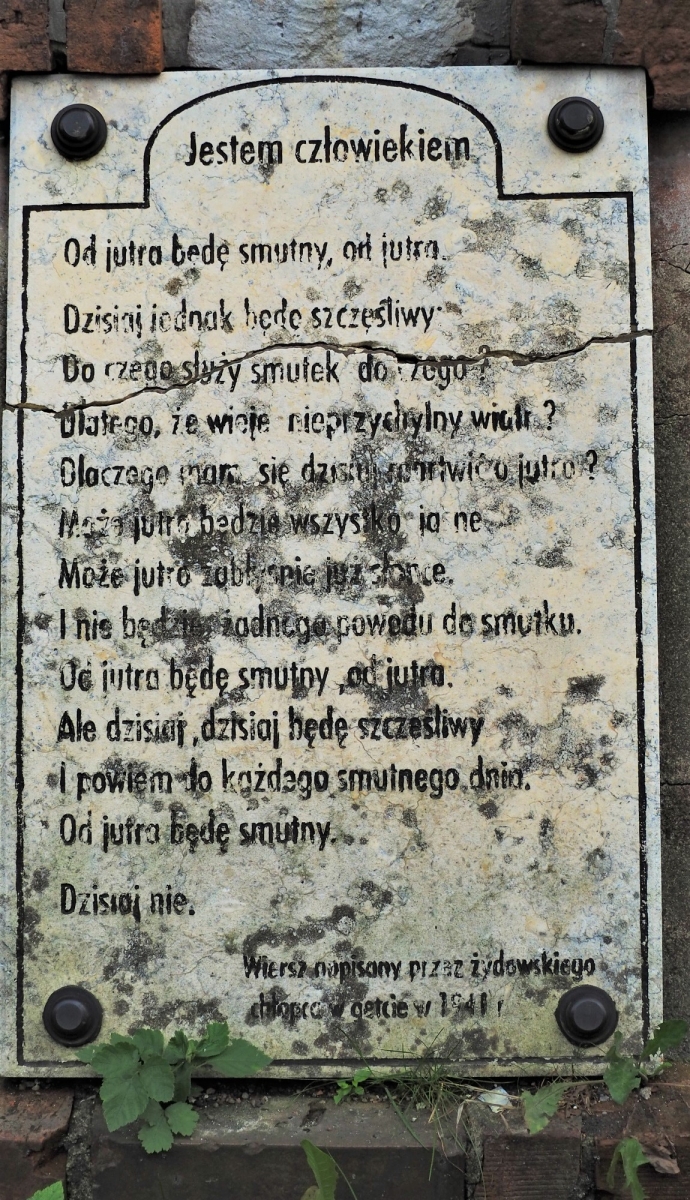 Jestem człowiekiem
Od jutra będę smutny, od jutra.
Dzisiaj jednak będę szczęśliwy
Do czego służy smutek do czego ?
Dlatego, że wieje nieprzychylny wiatr ?
Dlaczego mam się dzisiaj martwić o jutro ?
Może jutro będzie wszystko jasne
Może jutro zabłyśnie już słońce.
I nie będzie żadnego powodu do smutku.
Od jutra będę smutny ,od jutra.
Ale dzisiaj ,dzisiaj będę szczęśliwy
I powiem do każdego smutnego dnia.
Od jutra będę smutny.
Dzisiaj nie.
Wiersz napisany przez żydowskiego
chłopca w getcie w 1941 r